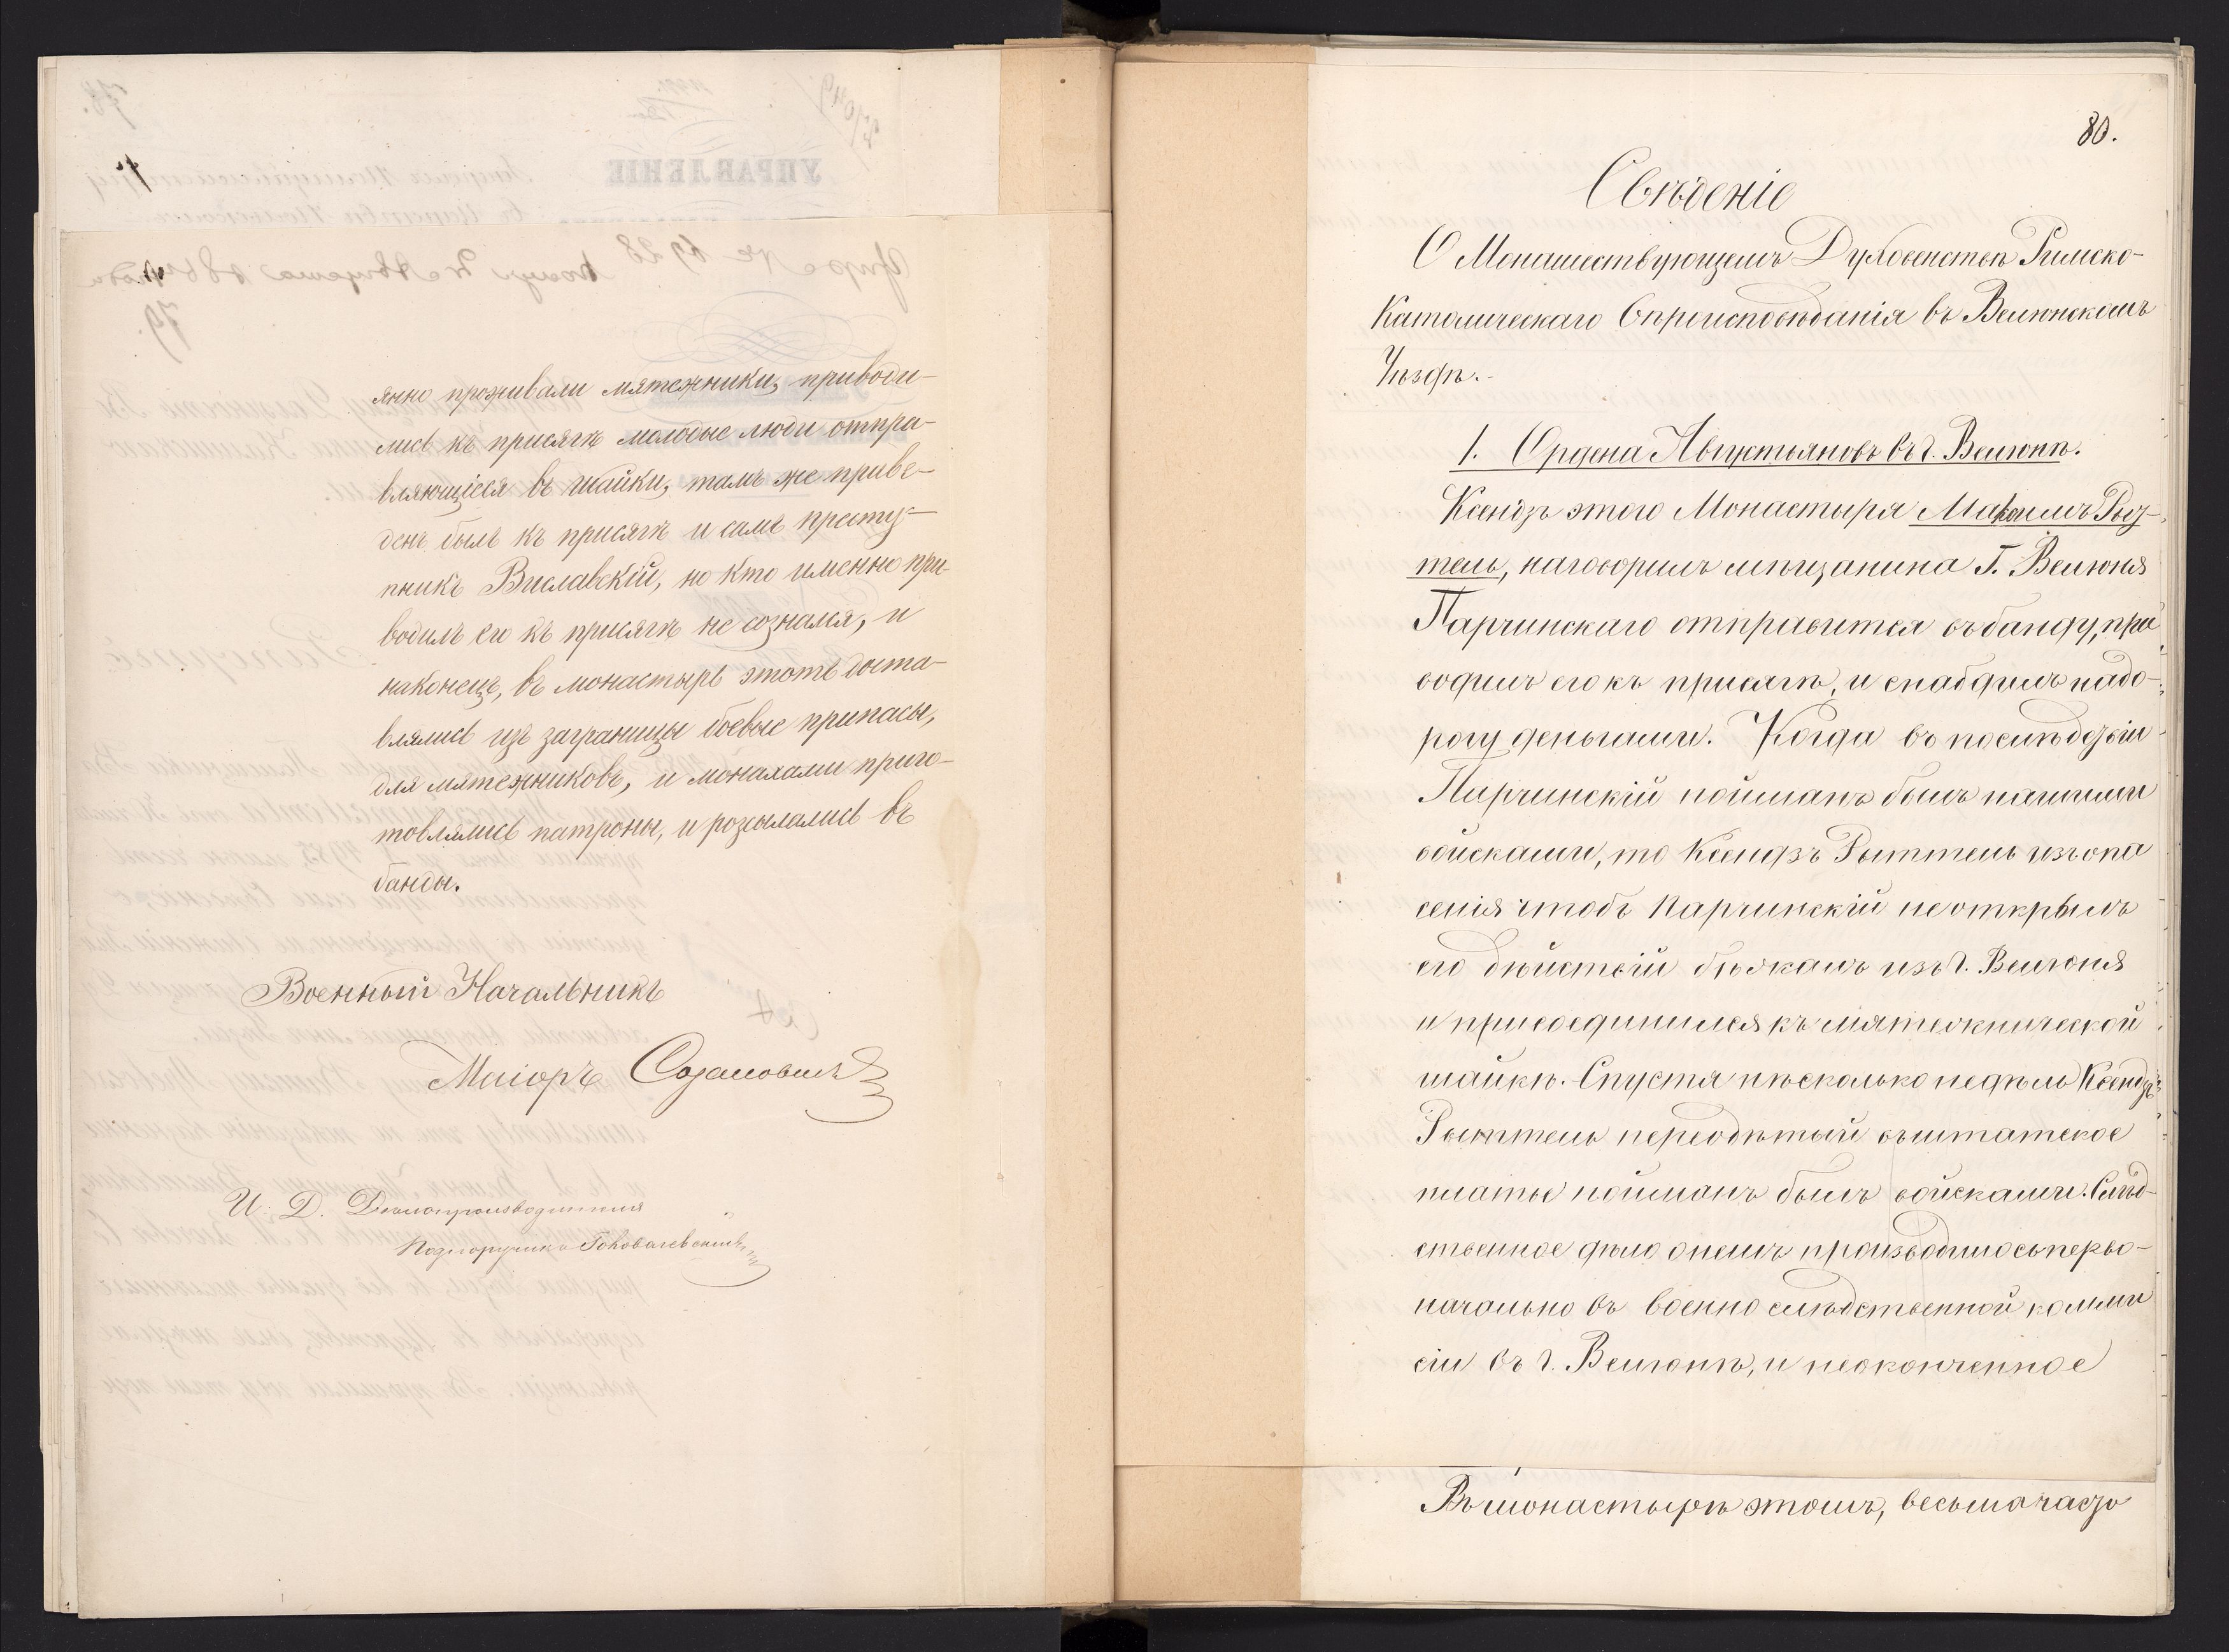 янно проживали мятежники, приводи-
лись къ присягѣ молодые люди отпра-
вляющіеся въ шайки, тамъ же приве-
денъ былъ къ присягѣ и самъ престу-
пникъ Виславскій, но кто именно при-
водилъ его къ присягѣ не сознался, и
наконецъ, въ монастырь этотъ доста-
влялись изъ заграницы боевые припасы,
для мятежниковъ, и монахами приго-
товлялись патроны, и розсылались въ
банды.
Военный Начальникъ
Маіоръ
И. Д. Дѣлопроизводителя
Подпоручикъ
80.
Свѣденіе
О Монашествующемъ Духовенствѣ Римско-
Католическаго Вѣроисповѣданія въ Велюнскомъ
Уѣздѣ.-
1. Ордена Августьяновъ въ г. Велюнѣ.
Ксендзъ этого Монастыря Максимъ Рыт-
тель, наговорилъ мѣщанина г. Велюня
Парчинскаго отправится въ банду, при
водилъ его къ присягѣ, и снабдилъ на до-
рогу деньгами. Когда въ послѣдствіи
Парчинскій пойманъ былъ нашими
войсками, то Ксендзъ Рыттель изъ опа
сенія чтобъ Парчинскій не открылъ
его дѣйствій бѣжалъ изъ г. Велюня
и присоединился къ мятежнической
шайкѣ. Спустя нѣсколько недѣль Ксендзъ
Рыттель переодѣтый въ штатское
платье пойманъ былъ войсками. Слѣд-
ственное дѣло о немъ производилось перво-
начально въ военно слѣдственной комми
сіи въ г. Велюнѣ, и неоконченное
Въ монастырѣ этомъ, весьма часто